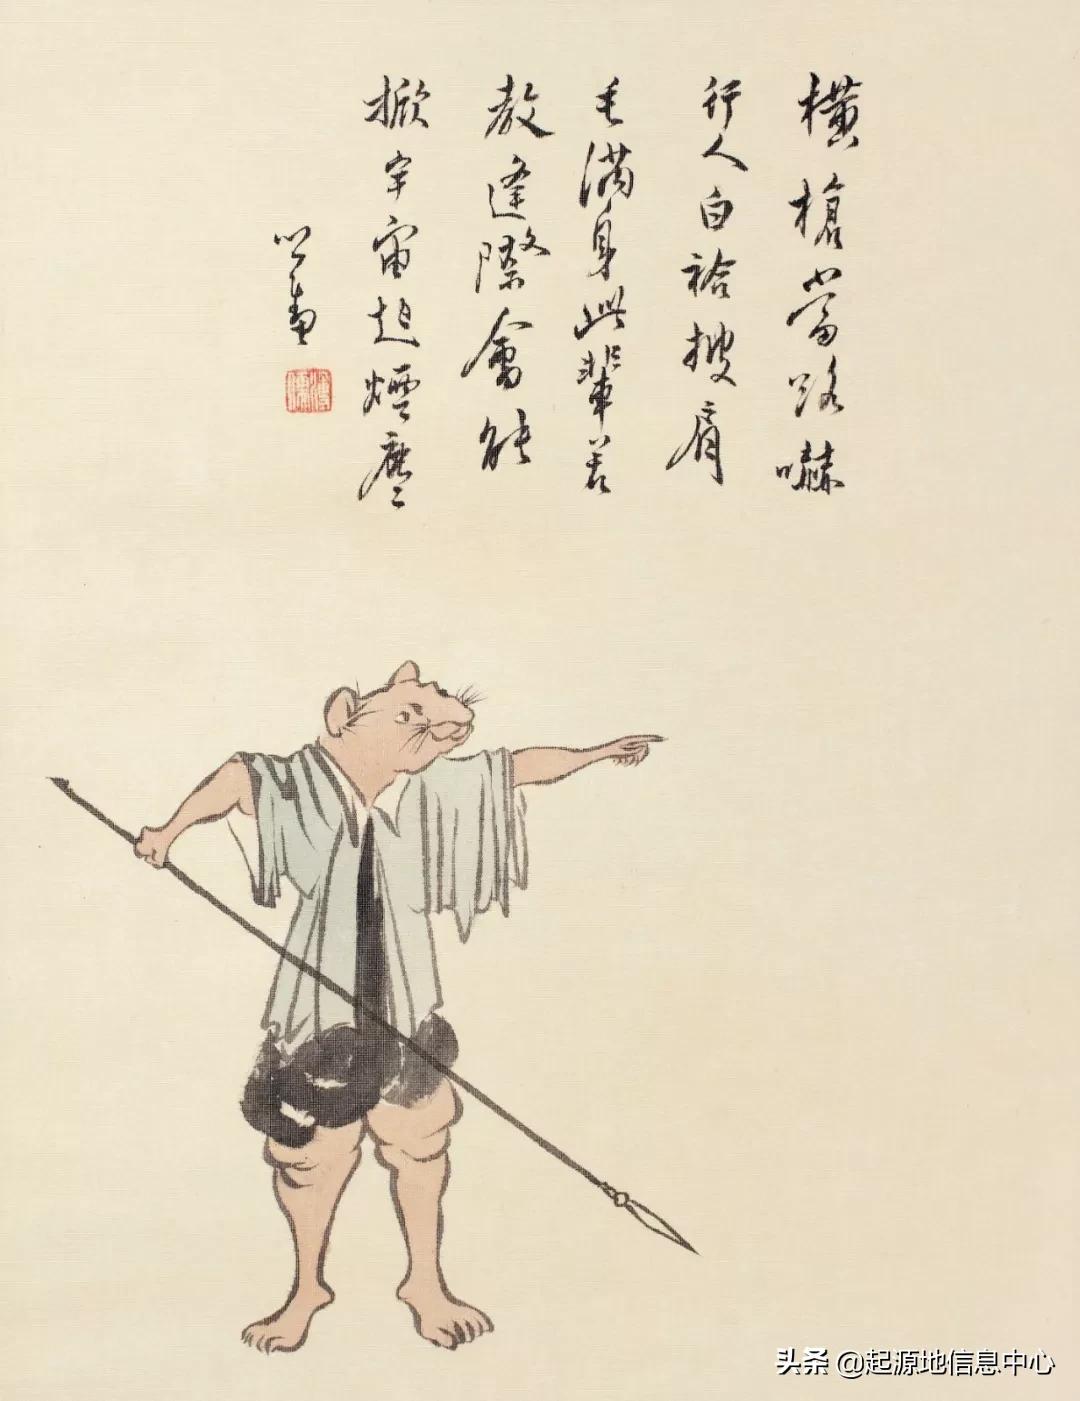 橫槍當路嚇
行人白袷披肩
毛滿身此輩若
教逢際會能
掀宇宙起煙塵
心畬
溥儒
头条 @起源地信息中心